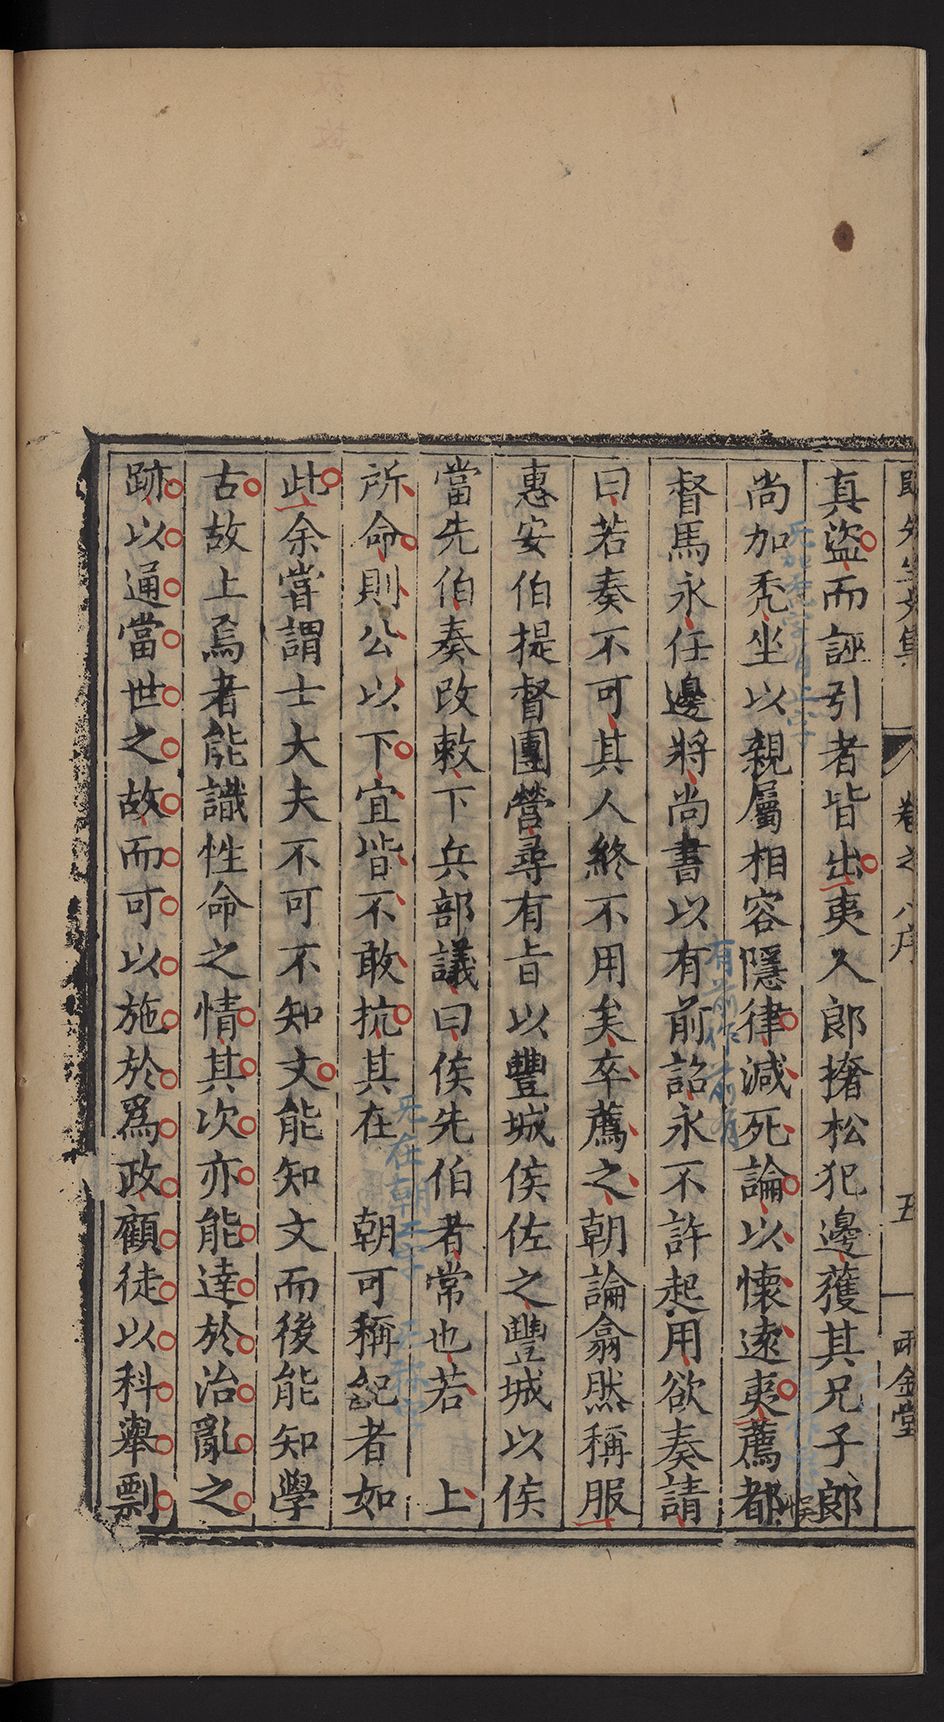 先生文集 卷之八序 五 雨金堂
真盗而誣引者皆出夷人郎撦松犯邊獲其兄子郎
尚加禿坐以親屬相容隱律減死論以懷遠夷薦都
督馬永任邊將尚書以有前詔永不許起用欲奏請
曰若奏不可其人終不用矣卒薦之朝論翕然稱服
惠安伯提督團營尋有旨以豐城侯佐之豐城以侯
當先伯奏改敕下兵部議曰侯先伯者常也若 上
所命則公以下宜皆不敢抗其在 朝可稱記者如
此余嘗謂士大夫不可不知文能知文而後能知學
古故上焉者能識性命之情其次亦能達於治亂之
跡以通當世之故而可以施於爲政顧徒以科舉剽
有前作前有